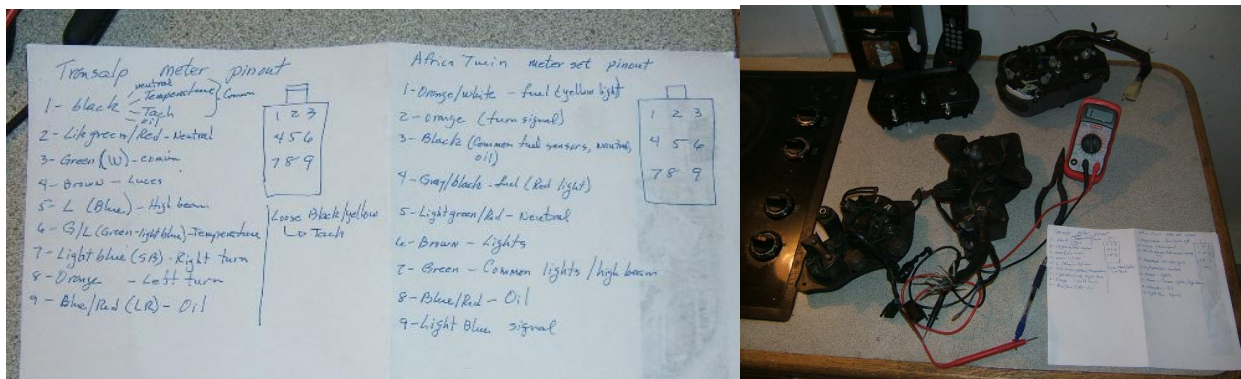 Transalp meter pinout
1- black neutral Temperature Tach oil } Common
2- Litegreen/Red - Neutral
3- Green (W) - común
4- Brown - Luces
5- L (Blue) - High beam
6- G/L (Green-lightblue) - Temperature
7- Light blue (SB) - Right turn
8- Orange - Left turn
9- Blue/Red (LR) - Oil
1 2 3
4 5 6
7 8 9
Loose Black/yellow
Tach
Africa Twin meter set pinout
1- Orange/white - fuel (yellow light)
2- Orange (turn signal)
3- Black (Common fuel sensors, neutral,
oil)
4- Gray/black - fuel (Red light)
5- Lightgreen/Red - Neutral
6- Brown - Lights
7- Green - Common lights/high beam
8- Blue/Red - Oil
9- Light Blue signal
1 2 3
4 5 6
7 8 9